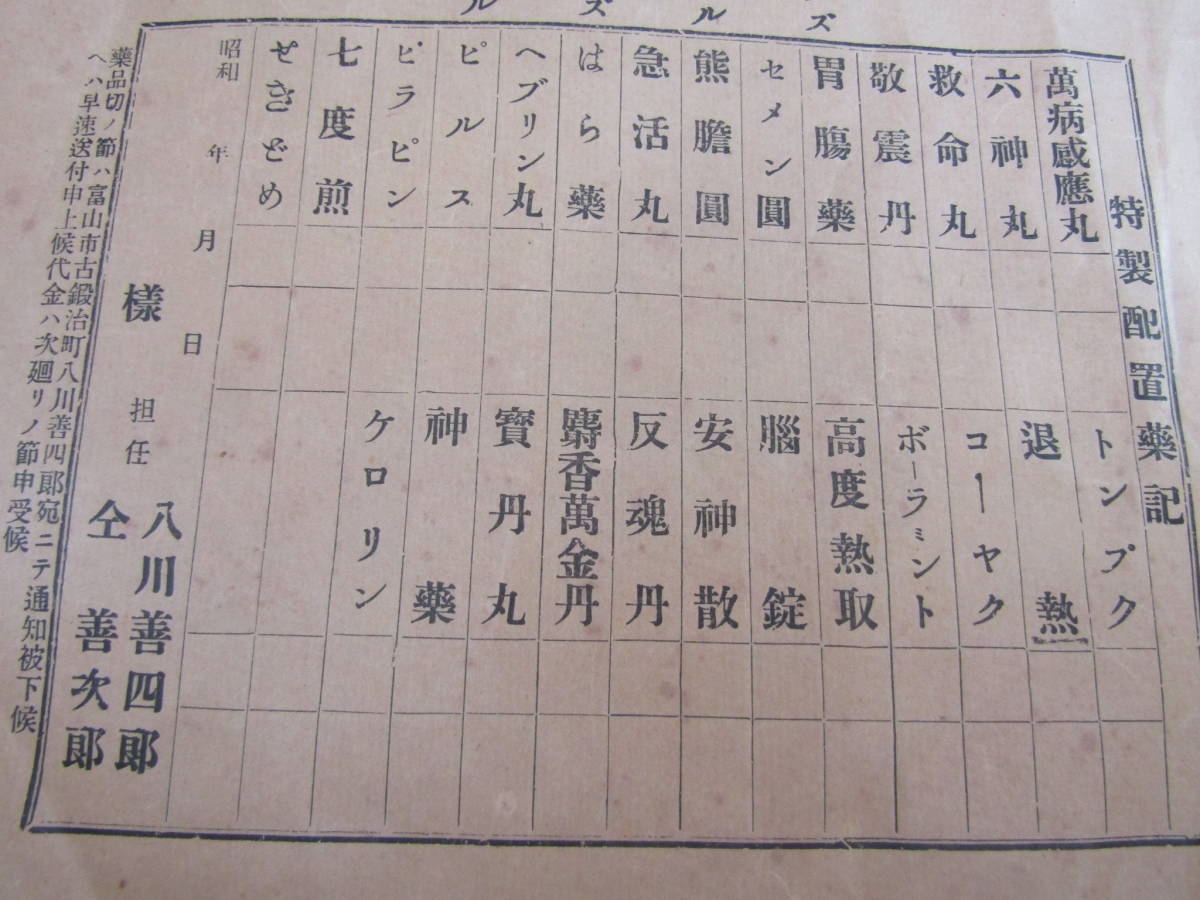 ズ
ル
ズ
ル
特製配置藥記
萬病感應丸
六神丸
救命丸
敬震丹
胃腸藥
セメン圓
熊膽圓
急活丸
はら藥
ヘブリン丸
ピルス
ピラピン
七度煎
せきどめ
トンプク
退熱
コーヤク
ボーラミント
高度熱取
腦錠
安神散
反魂丹
麝香萬金丹
寶丹丸
神藥
ケロリン
昭和 年 月 日
樣
担任 八川善四郎
仝 善次郎
藥品切ノ節ハ富山市古鍛治町八川善四郎宛ニテ通知被下候
ヘハ早速送付申上候代金ハ次廻リノ節申受候